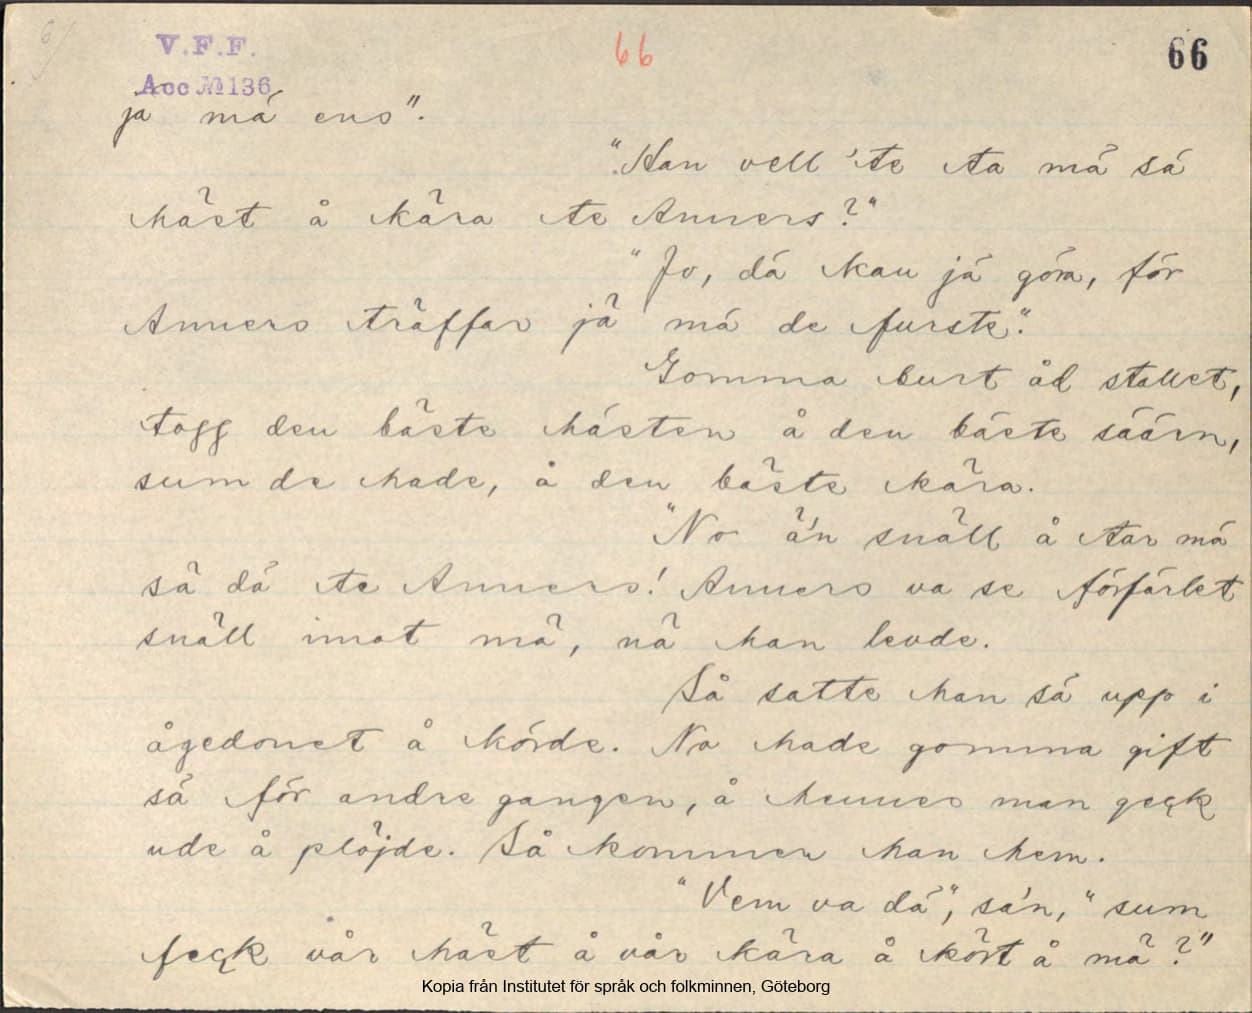 6
V.F.F.
66
66
Acc № 136
ja mä ens".
"Han vell 'te ta mä sä
häst å kära te Anners?"
"Jo, dä kan jä göra, för
Anners träffar jä mä de furste".
Gomma burt åd stallet,
togg den bäste hästen å den bäste säärn,
sum de hade, å den bäste kära.
"No ä'n snäll å tar mä
sä dä te Anners! Anners va se förfärlet
snäll imot mä, nä han levde.
Så satte han sä upp i
ågedonet å körde. No hade gomma gift
sä för andre gangen, å hennes man geck
ude å plöjde. Så kommer han hem.
"Vem va dä", sä'n, "sum
feck vår häst å vår kära å kört å mä?"
Kopia från Institutet för språk och folkminnen, Göteborg